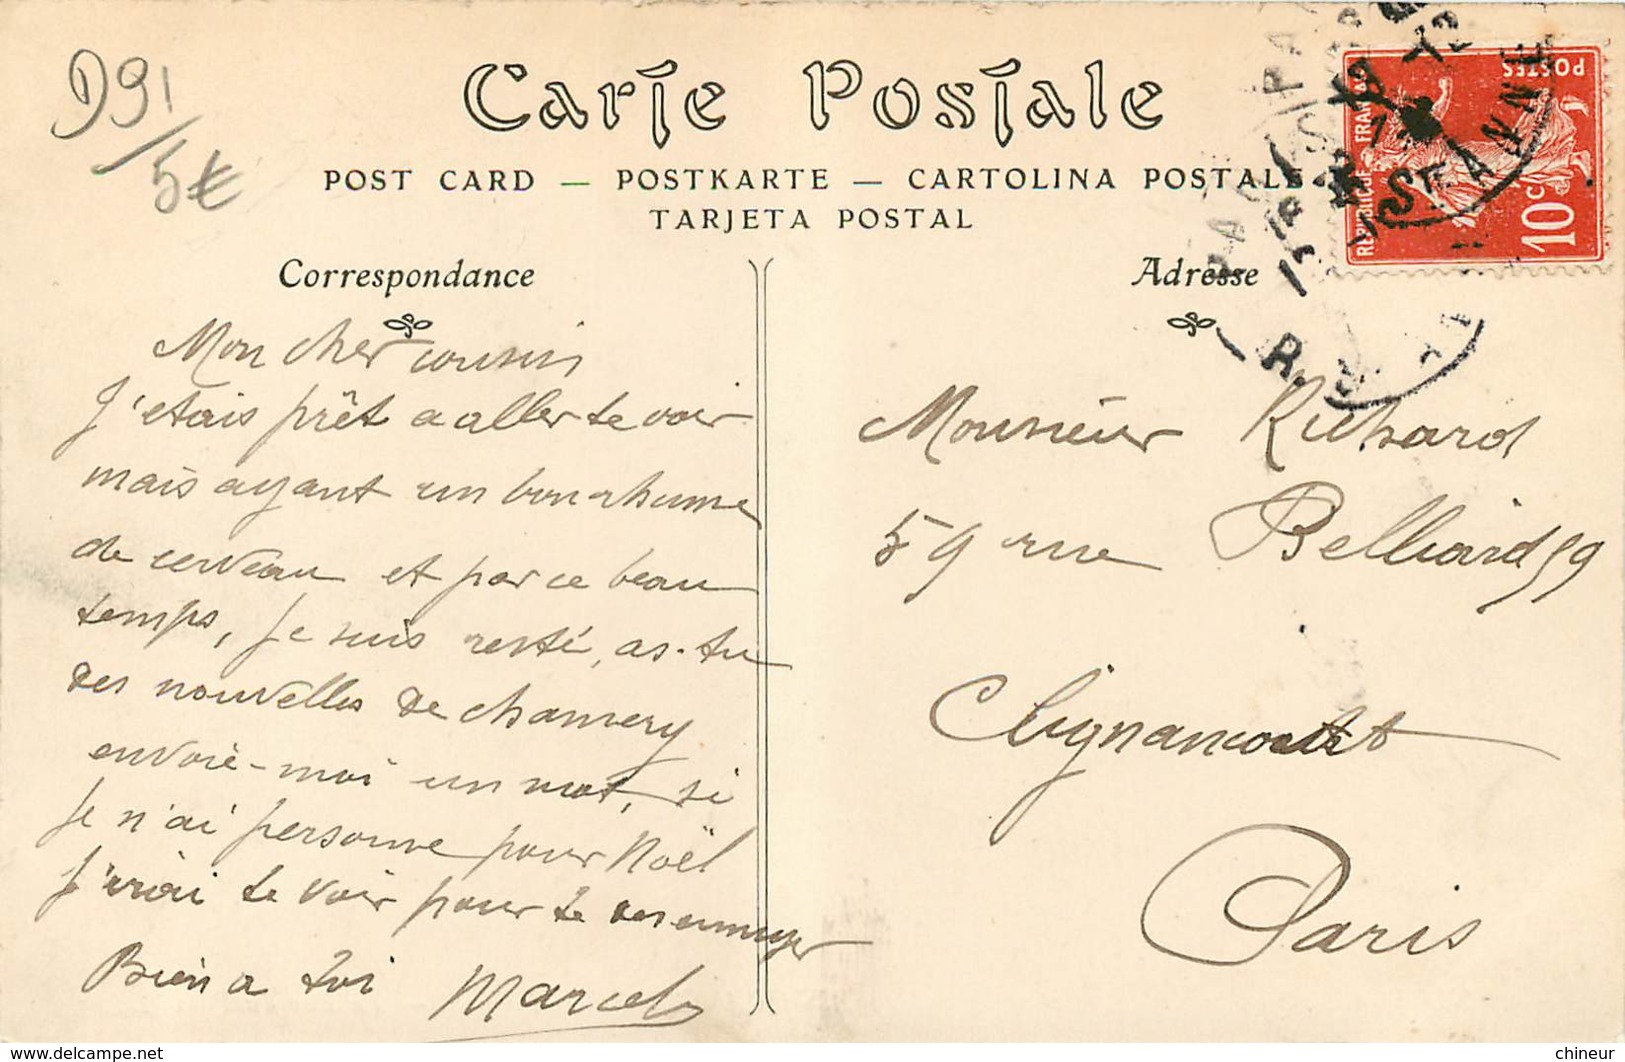 D91
5€
Carte Postale
POST CARD — POSTKARTE — CARTOLINA POSTALE
TARJETA POSTAL
Correspondance
Mon cher cousin
J'etais prêt a aller te voir
mais ayant un bon rhume
de cerveau et par ce beau
temps, je suis resté, as-tu
des nouvelles de chamery
envoie-moi un mot, si
je n'ai personne pour Noël
j'irai te voir pour te desennuyer
Bien a toi Marcel
Adresse
Monsieur Richard
59 rue Belliard 59
Clignancourt
Paris
POSTES
REPUBLIQUE FRANÇAISE
10c
PARIS
R. STE ANNE
www.delcampe.net
chineur